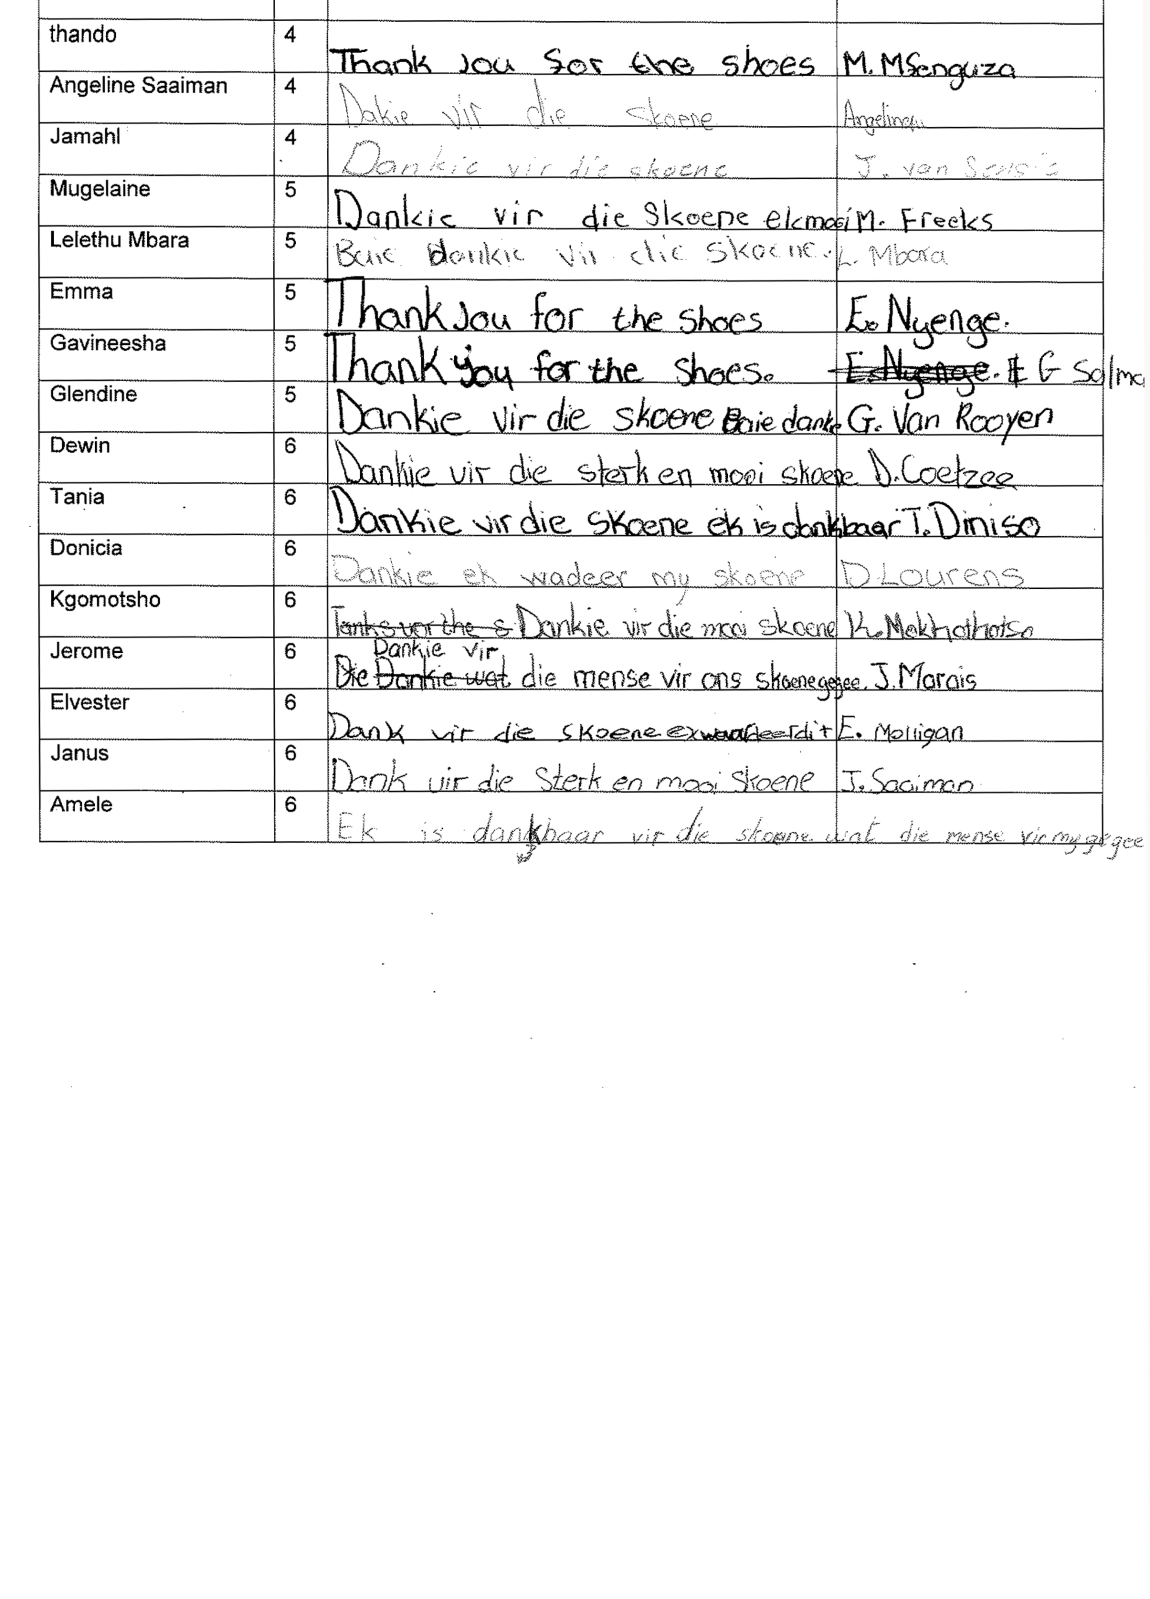 thando 4 Thank jou for the shoes M. MSenguza
Angeline Saaiman 4 Dakie vir die skoene
Jamahl 4 Dankie vir die skoene J. van
Mugelaine 5 Dankie vir die Skoene ek mooi M. Freeks
Lelethu Mbara 5 Baie dankie vir die skoene. L. Mbara
Emma 5 Thank jou for the shoes E. Nyenge.
Gavineesha 5 Thank you for the shoes. E. Nyenge. G Solmo
Glendine 5 Dankie vir die skoene Baie danke G. Van Rooyen
Dewin 6 Dankie vir die sterk en mooi skoene D. Coetzee
Tania 6 Dankie vir die skoene ek is dankbaar T. Diniso
Donicia 6 Dankie ek wadeer my skoene D Lourens
Kgomotsho 6 Tanks vor the s Dankie vir die mooi skoene K. Mokhothotso
Dankie vir
Jerome 6 Die Dankie wat die mense vir ons skoene gegee. J. Marais
Elvester 6 Dank vir die skoene dit E. Molligan
Janus 6 Dank vir die Sterk en mooi Skoene J. Saaiman
Amele 6 Ek is dankbaar vir die skoene wat die mense vir my gegee